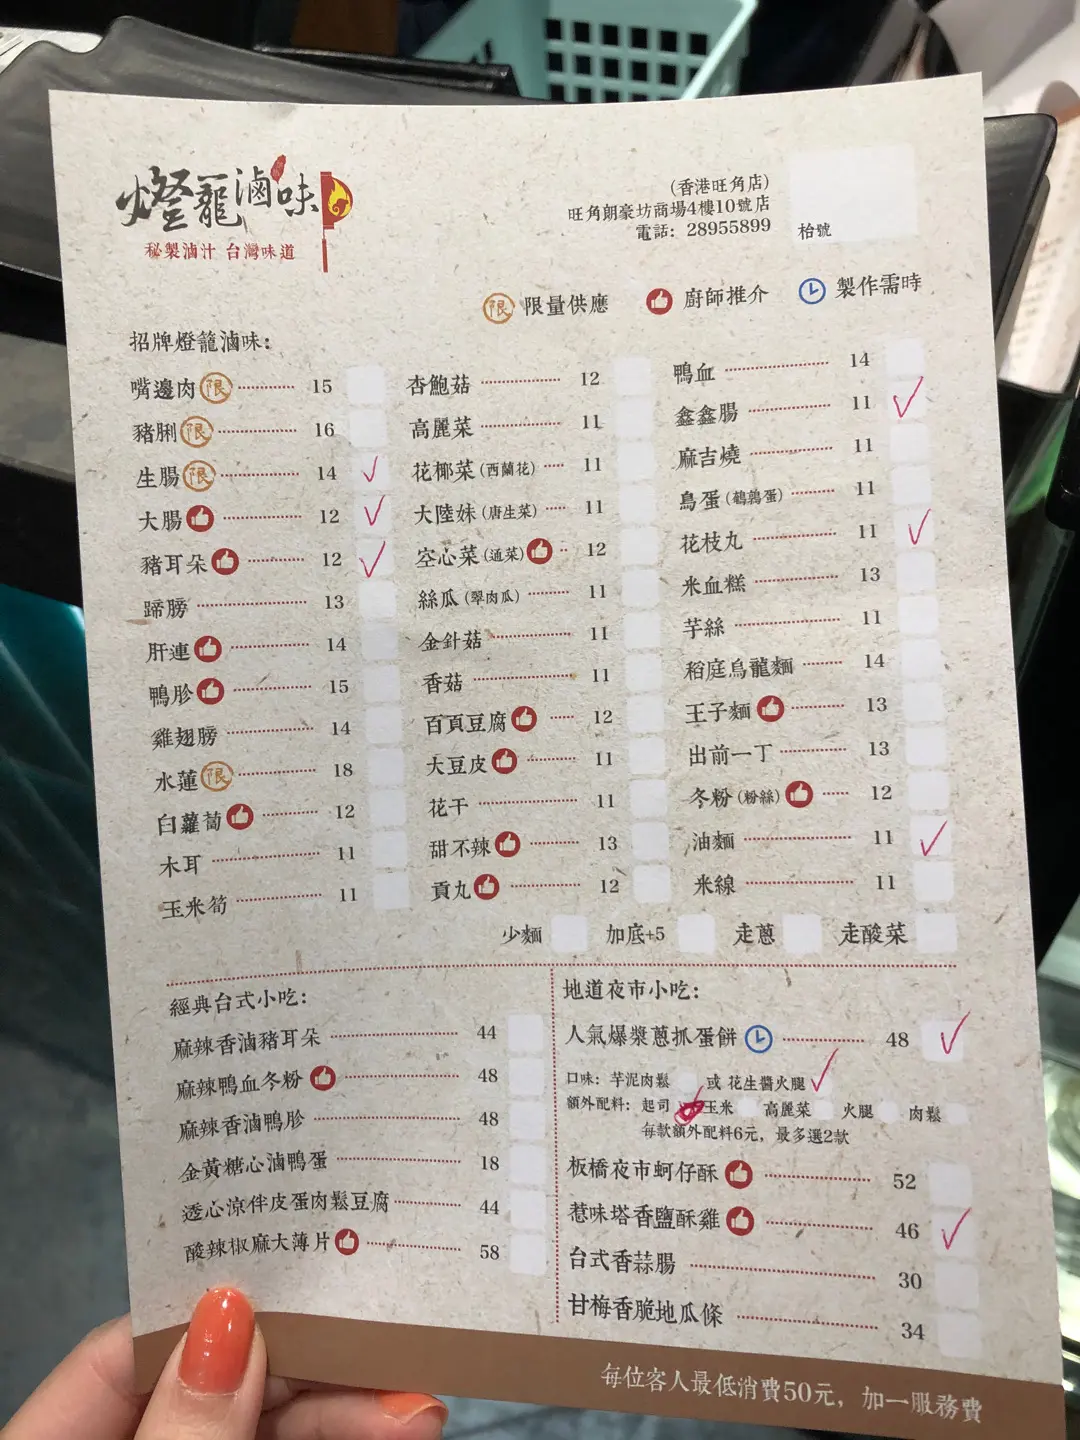 燈籠滷味
秘製滷汁 台灣味道
(香港旺角店)
旺角朗豪坊商場4樓10號店
電話：28955899
枱號
限 限量供應 廚師推介 製作需時
招牌燈籠滷味：
嘴邊肉 限 15
豬脷 限 16
生腸 限 14
大腸 12
豬耳朵 12
蹄膀 13
肝連 14
鴨胗 15
雞翅膀 14
水蓮 限 18
白蘿蔔 12
木耳 11
玉米筍 11
杏鮑菇 12
高麗菜 11
花椰菜(西蘭花) 11
大陸妹(唐生菜) 11
空心菜(通菜) 12
絲瓜(翠肉瓜) 11
金針菇 11
香菇 11
百頁豆腐 12
大豆皮 11
花干 11
甜不辣 13
貢丸 12
鴨血 14
鑫鑫腸 11
麻吉燒 11
鳥蛋(鵪鶉蛋) 11
花枝丸 11
米血糕 13
芋絲 11
稻庭烏龍麵 14
王子麵 13
出前一丁 13
冬粉(粉絲) 12
油麵 11
米線 11
少麵 加底+5 走蔥 走酸菜
經典台式小吃：
麻辣香滷豬耳朵 44
麻辣鴨血冬粉 48
麻辣香滷鴨胗 48
金黃糖心滷鴨蛋 18
透心涼伴皮蛋肉鬆豆腐 44
酸辣椒麻大薄片 58
地道夜市小吃：
人氣爆漿蔥抓蛋餅 48
口味：芋泥肉鬆 或 花生醬火腿
額外配料：起司 玉米 高麗菜 火腿 肉鬆
每款額外配料6元，最多選2款
板橋夜市蚵仔酥 52
惹味塔香鹽酥雞 46
台式香蒜腸 30
甘梅香脆地瓜條 34
每位客人最低消費50元，加一服務費